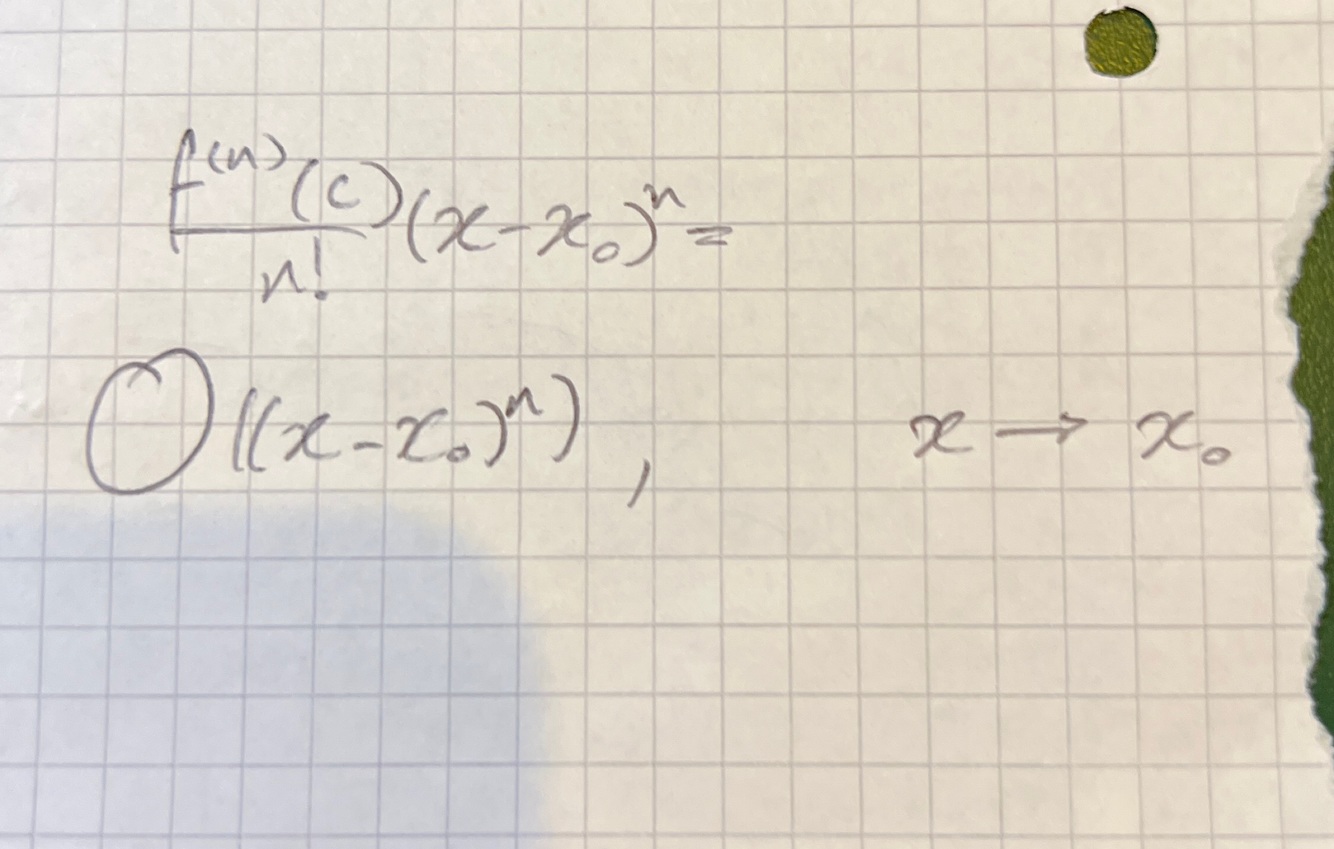 f⁽ⁿ⁾(c)/n! (x-x₀)ⁿ =
O((x-x₀)ⁿ), x → x₀